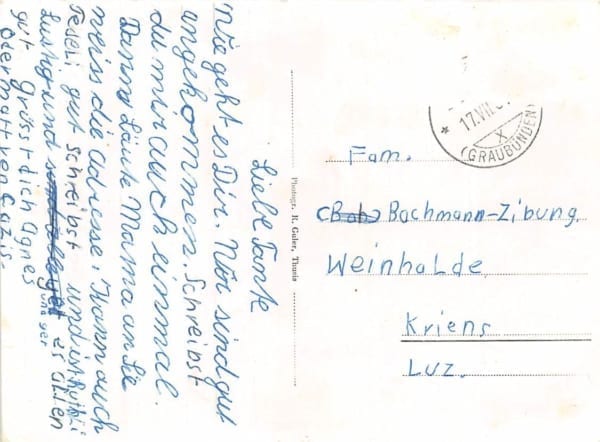 Liebe Tante
Wie geht es Dir. Wir sind gut
angekommen. Schreibst
du mir auch einmal.
Dann Läute Mama an Sie
mein die Adresse. Kann auch
gut schreibst und ist
Lustig und es allen
gut grüsst dich Agnes
Odermatt von Cazis.
Photogr. R. Guler, Thusis
17.VII.
X
(GRAUBÜNDEN)
Fam.
Bachmann-Zibung
Weinhalde
Kriens
Luz.